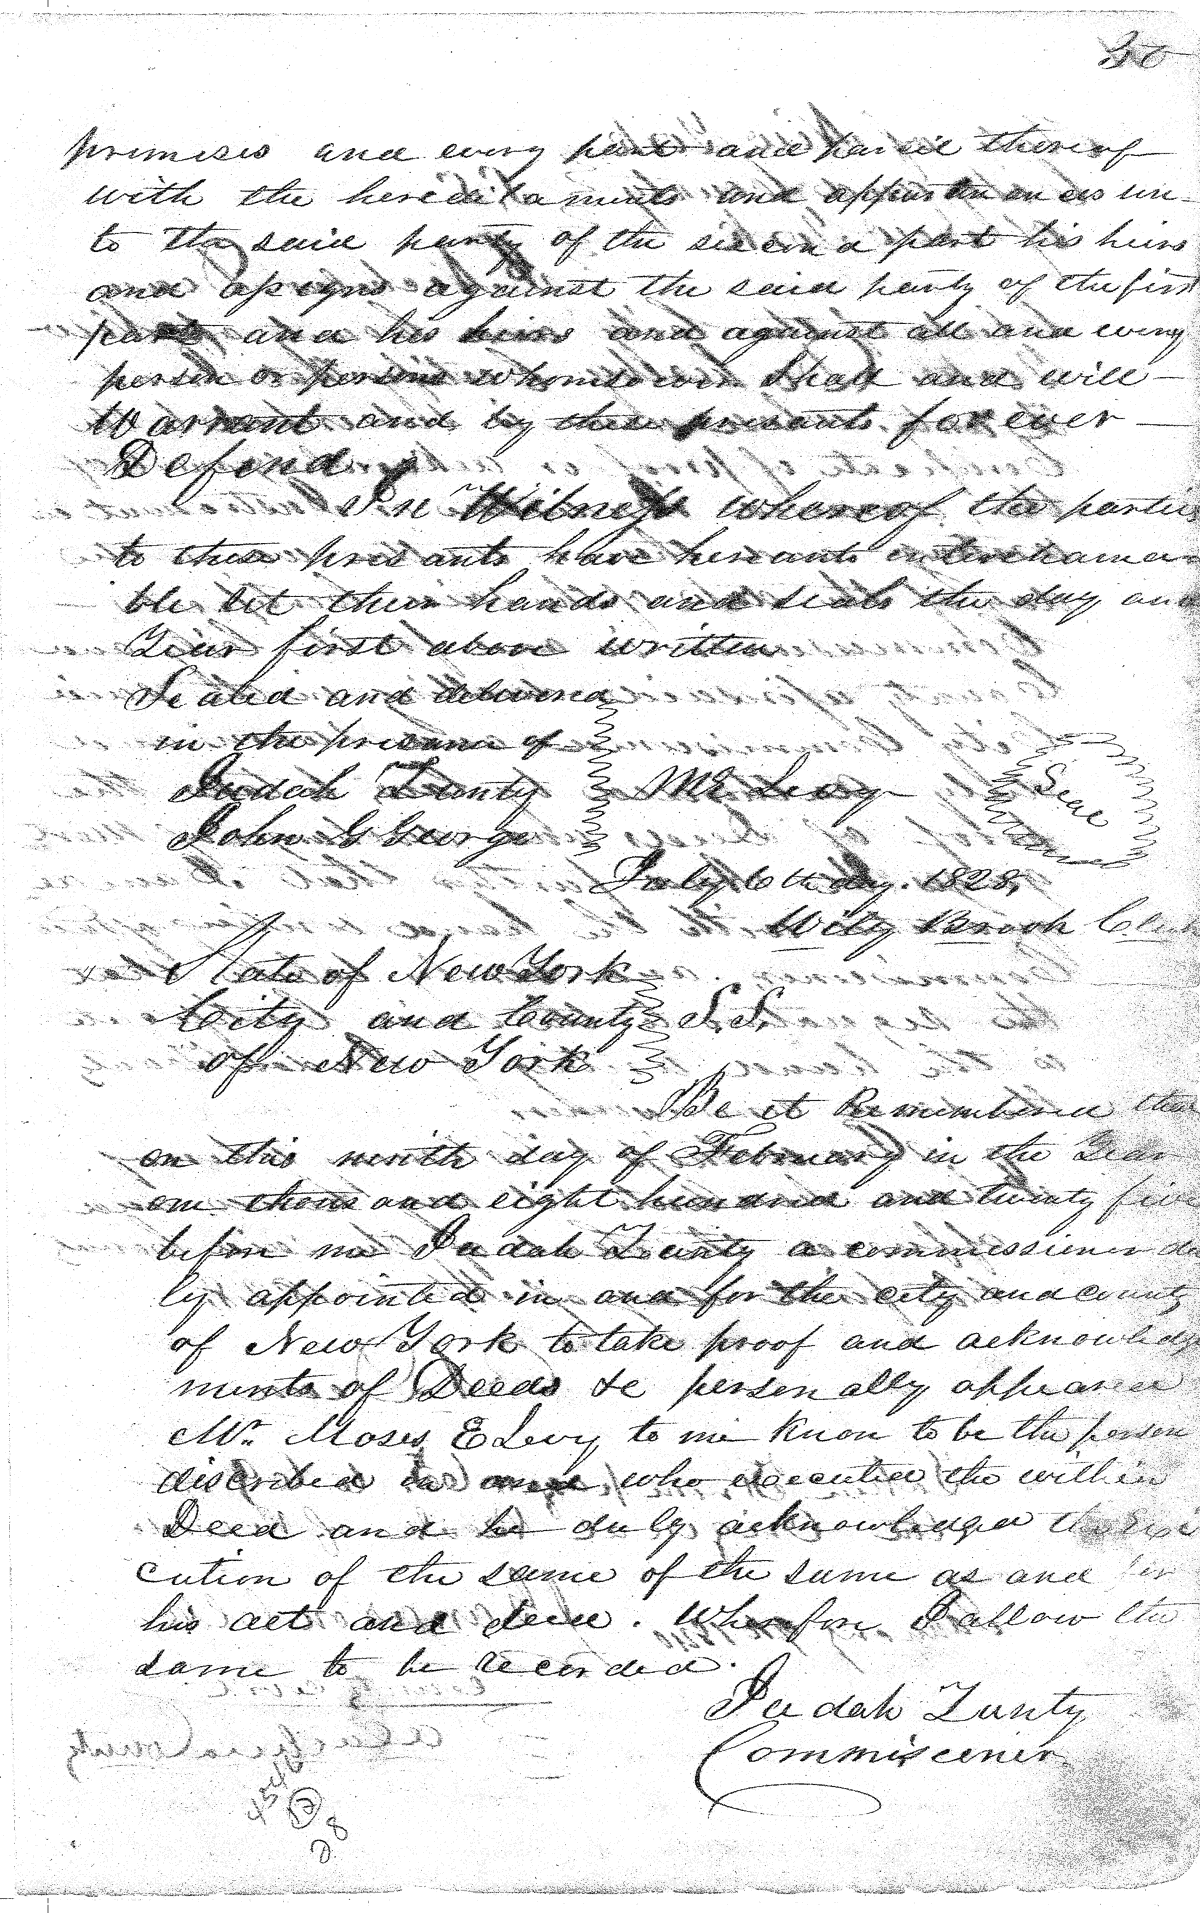 30
premises and every part and parcel thereof
with the hereditaments and appurtenances un-
to the said party of the second part his heirs
and assigns against the said party of the first
part and his heirs and against all and every
person or persons whomsoever Shall and will
Warrant and by these presants for ever
Defend
In Witness whereof the parties
to these presants have hereunto interchamea
ble set their hands and seals the day and
Year first above written
Sealed and delivered
in the presence of
Judah Zunty M E Levy Seal
John G George
July 6th day. 1828,
Wity Brook Clerk
State of New York
City and County S.S.
of New York
Be it Remembered that
on this ninth day of February in the Year
one thousand eight hundred and twenty five
before me Judah Zunty a commissioner du
ly appointed in and for the city and county
of New York to take proof and acknowledge
ments of Deeds &c personally appeared
Mr. Moses E Levy to me Know to be the person
discribed in and who executed the within
Deed and he duly acknowledged the Exe
cution of the same of the same as and for
his act and deed. Wherefore I allow the
same to be recorded.
Judah Zunty
Commiscener
4546
12
28